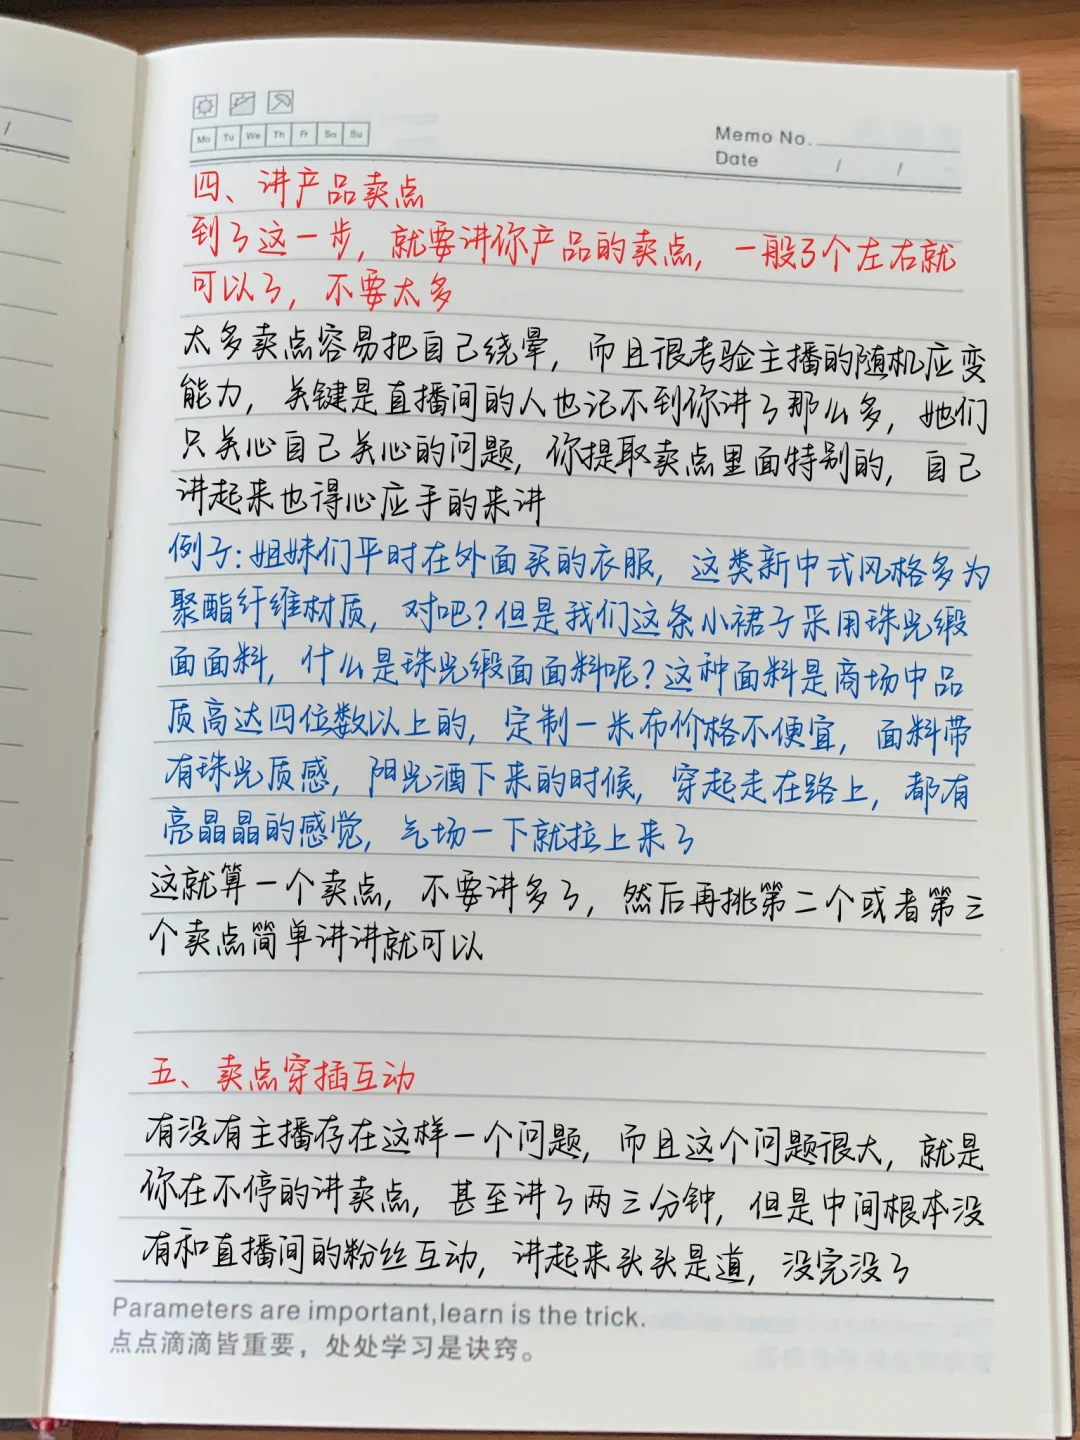 Mo Tu We Th Fr Sa Su
Memo No.
Date / /
四、讲产品卖点
到了这一步，就要讲你产品的卖点，一般3个左右就
可以了，不要太多
太多卖点容易把自己绕晕，而且很考验主播的随机应变
能力，关键是直播间的人也记不到你讲了那么多，她们
只关心自己关心的问题，你提取卖点里面特别的，自己
讲起来也得心应手的来讲
例子：姐妹们平时在外面买的衣服，这类新中式风格多为
聚酯纤维材质，对吧？但是我们这条小裙子采用珠光缎
面面料，什么是珠光缎面面料呢？这种面料是商场中品
质高达四位数以上的，定制一米布价格不便宜，面料带
有珠光质感，阳光洒下来的时候，穿起走在路上，都有
亮晶晶的感觉，气场一下就拉上来了
这就算一个卖点，不要讲多了，然后再挑第二个或者第三
个卖点简单讲讲就可以
五、卖点穿插互动
有没有主播存在这样一个问题，而且这个问题很大，就是
你在不停的讲卖点，甚至讲了两三分钟，但是中间根本没
有和直播间的粉丝互动，讲起来头头是道，没完没了
Parameters are important,learn is the trick.
点点滴滴皆重要，处处学习是诀窍。
/